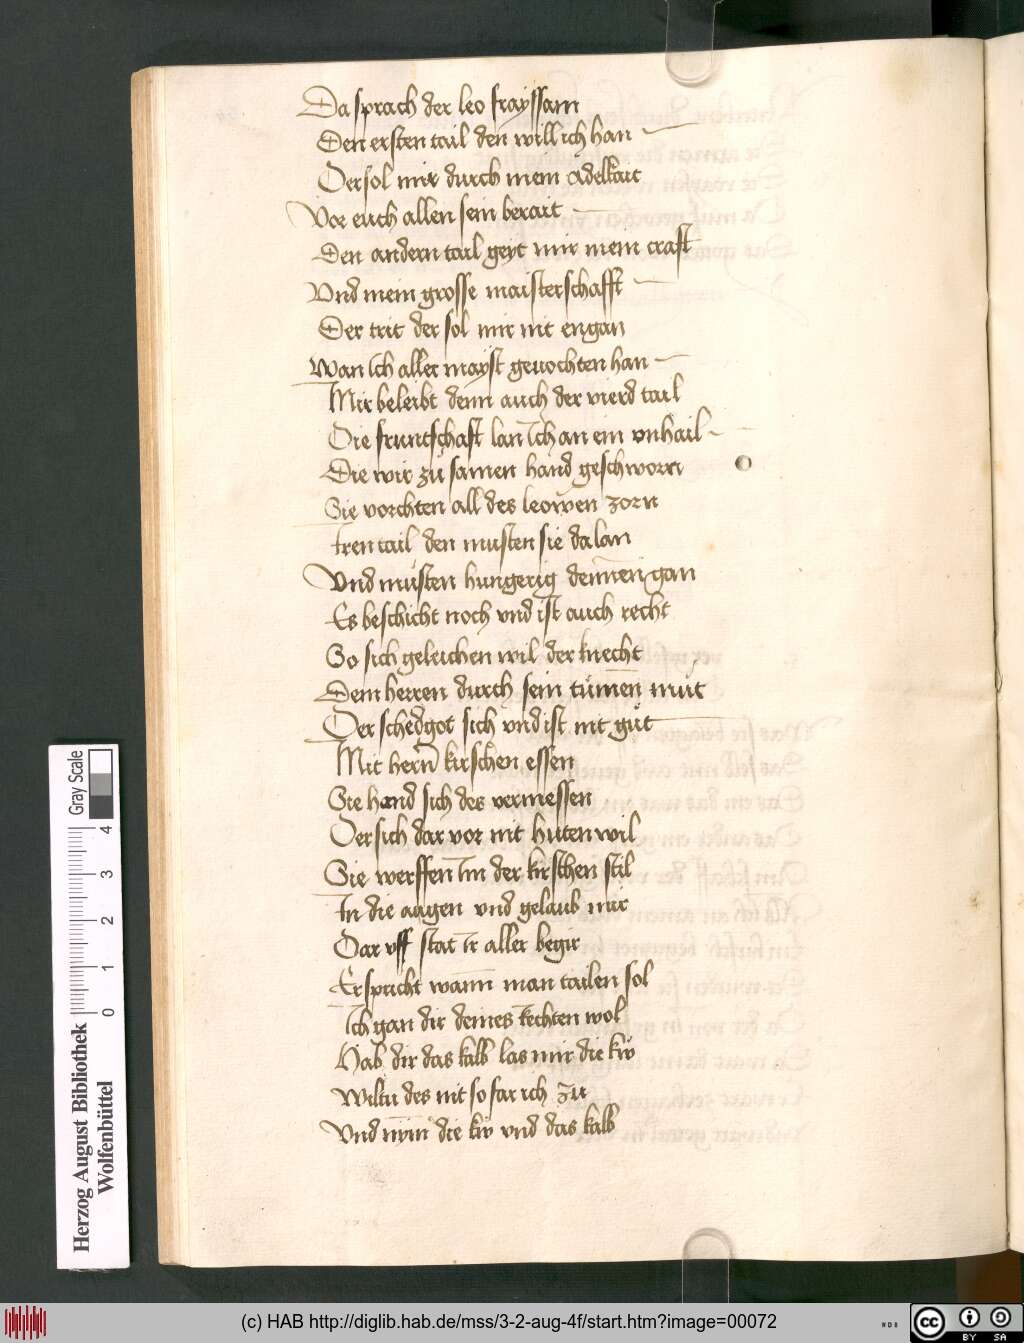 Da sprach der leo frayssam
Den ersten tail den will ich han
Der sol mir durch mein adelkait
Vor euch allen sein berait
Den andern tail geyt mir mein craft
Vnd mein grosse maisterschafft
Der trit der sol mir nit engan
Wan Ich aller mayst geuochten han
Mir beleibt denn auch der vierd tail
Die fruntschaft lan Ich an ein vnhail
Die wir zů samen hand geschworn
Sie vorchten all des leowen zorn
Iren tail den musten sie da lan
Vnd műsten hungerig dennen gan
Es beschicht noch vnd ist auch recht
So sich geleichen wil der knecht
Dem herren durch sein tumen můt
Der schedgot sich vnd ist nit gůt
Mit hern kirschen essen
Sie hand sich des vermessen
Der sich dar vor nit huten wil
Sie werffen Im der kirschen stil
In die augen vnd gelaub mir
Dar vff stat Ir aller begir
Er spricht wann man tailen sol
Ich gan dir deines rechten wol
Hab dir das kalb las mir die kw
Wiltu des nit so far ich zu
Vnd nym die kw vnd das kalb
Gray Scale
4
3
2
1
0
Herzog August Bibliothek
Wolfenbüttel
(c) HAB http://diglib.hab.de/mss/3-2-aug-4f/start.htm?image=00072
WDB
CC BY SA